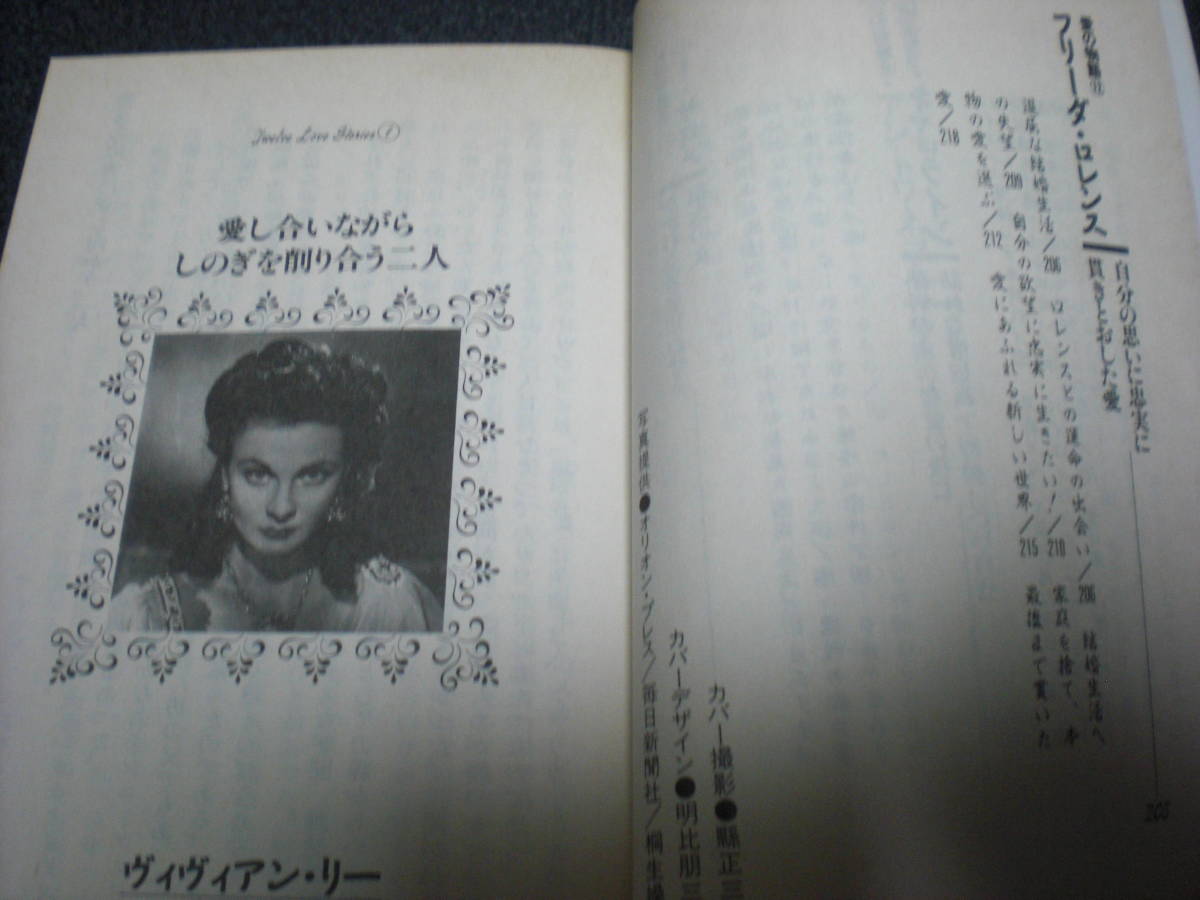 愛の物語⑫
フリーダ・ロレンス
自分の思いに忠実に
貫きとおした愛
205
退屈な結婚生活/206 ロレンスとの運命の出会い/206 結婚生活へ
の失望/209 自分の欲望に忠実に生きたい!/210 家庭を捨て、本
物の愛を選ぶ/212 愛にあふれる新しい世界/215 最後まで貫いた
愛/218
カバー撮影●縣正三
カバーデザイン●明比朋三
写真提供●オリオン・プレス/毎日新聞社/桐生操
Twelve Love Stories①
愛し合いながら
しのぎを削り合う二人
ヴィヴィアン・リー